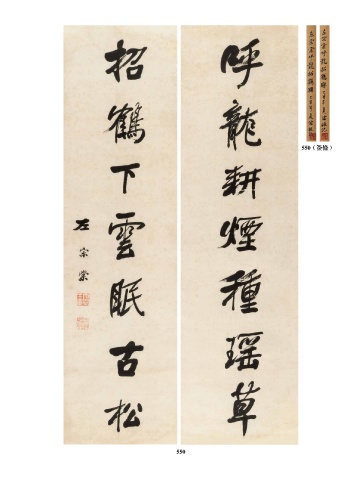 呼龍耕煙種瑶草
招鶴下雲眠古松
左宗棠
550（签條）
550